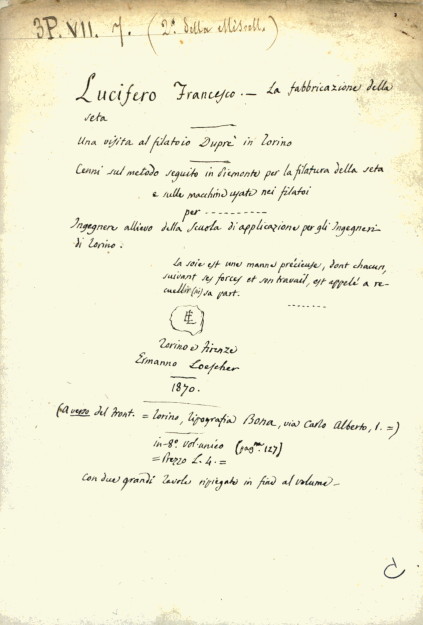 3P. VII. 7. (2ª della Miscell.)
Lucifero Francesco. — La fabbricazione della
seta
Una visita al filatoio Duprè in Torino
Cenni sul metodo seguito in Piemonte per la filatura della seta
e sulle macchine usate nei filatoi
per - - - - - - - - - -
Ingegnere allievo della Scuola di applicazione per gli Ingegneri -
di Torino :
La soie est une manne précieuse, dont chacun,
suivant ses forces et son travail, est appelé a re-
cueillit (sic) sa part.
- - - - - -
EL
Torino e Firenze
Ermanno Loescher
1870.
(A verso del front. = Torino, Tipografia Bona, via Carlo Alberto, 1. =)
in-8º vol. unico (pagne. 127)
= Prezzo L. 4. =
Con due grandi Tavole ripiegate in fine al volume —